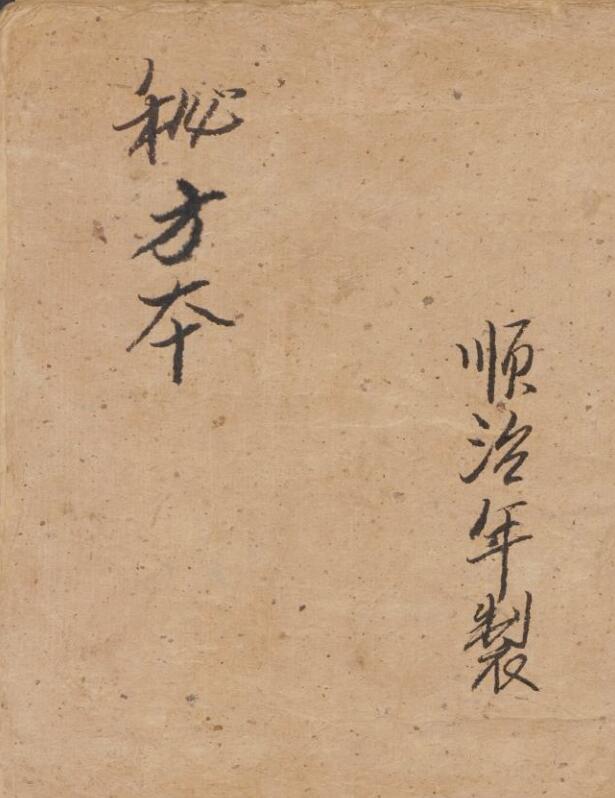 順治年製
秘方本